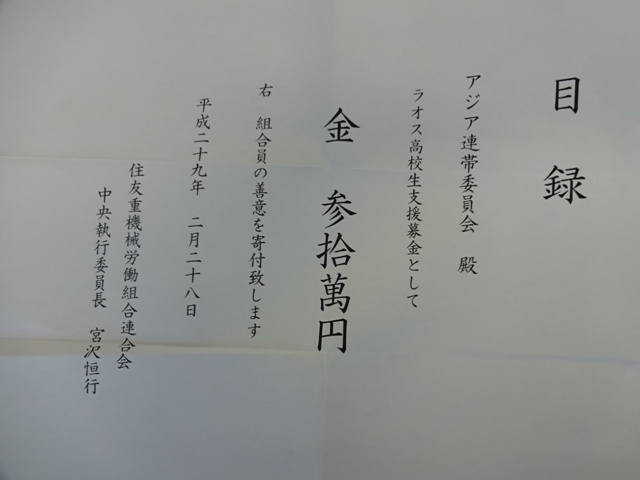 目録
アジア連帯委員会 殿
ラオス高校生支援募金として
金 参拾萬円
右 組合員の善意を寄付致します
平成二十九年 二月二十八日
住友重機械労働組合連合会
中央執行委員長 宮沢恒行